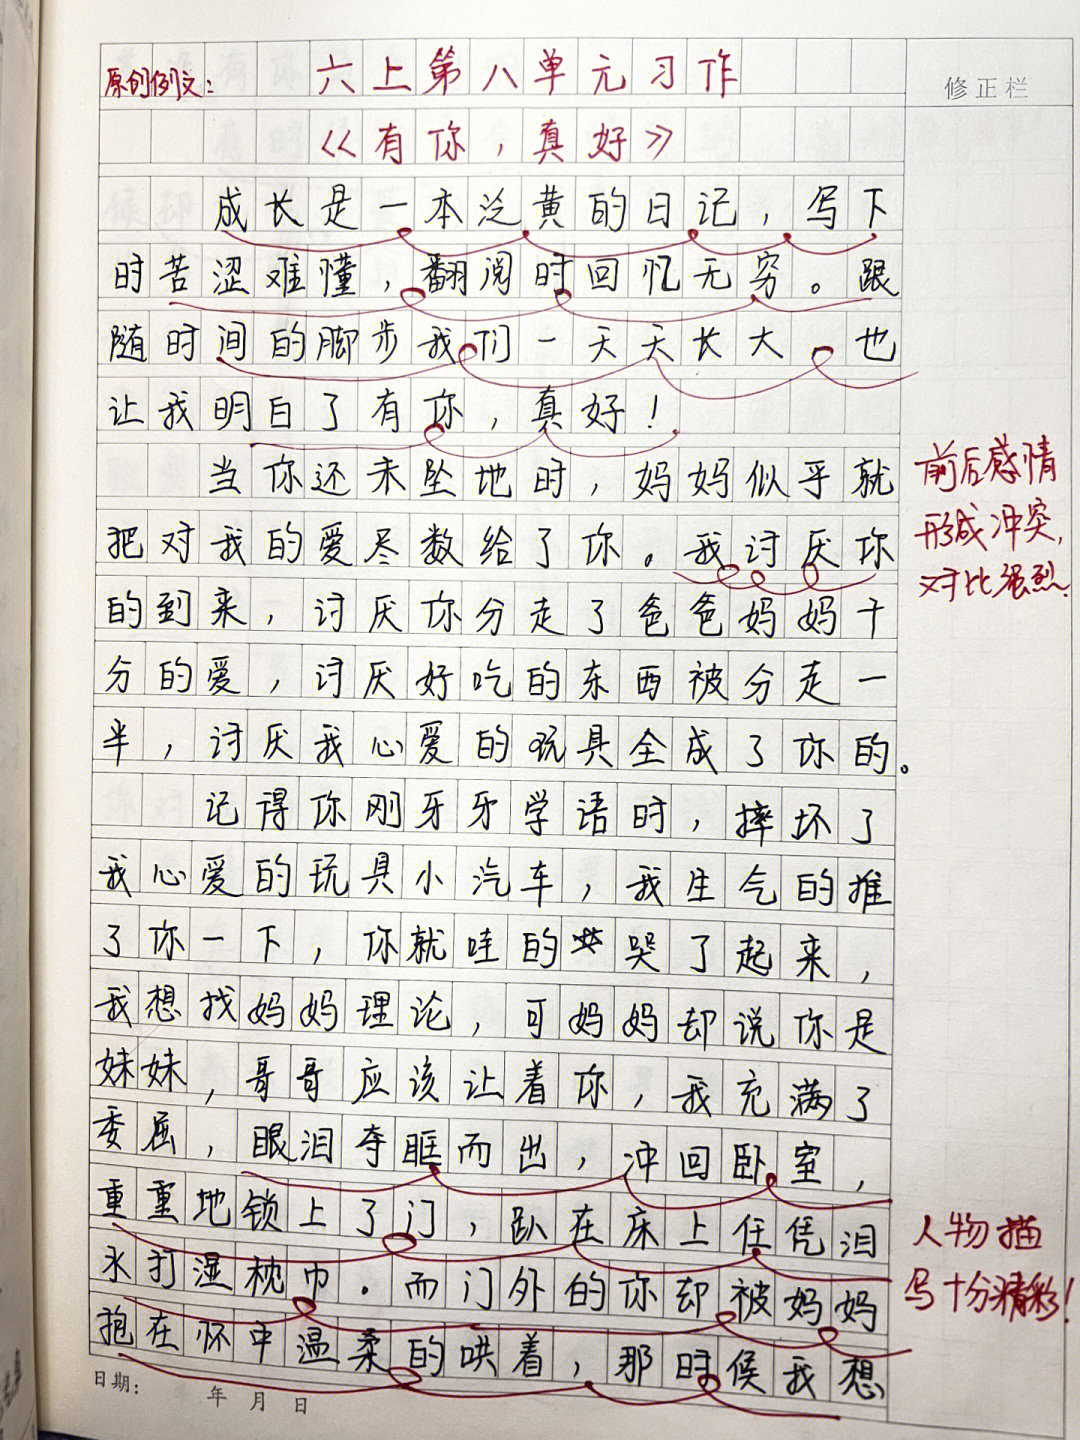 原创例文：六上第八单元习作
修正栏
《有你，真好》
成长是一本泛黄的日记，写下
时苦涩难懂，翻阅时回忆无穷。跟
随时间的脚步我们一天天长大，也
让我明白了有你，真好！
当你还未坠地时，妈妈似乎就
把对我的爱尽数给了你。我讨厌你
的到来，讨厌你分走了爸爸妈妈十
分的爱，讨厌好吃的东西被分走一
半，讨厌我心爱的玩具全成了你的。
前后感情
形成冲突，
对比强烈。
记得你刚牙牙学语时，摔坏了
我心爱的玩具小汽车，我生气的推
了你一下，你就哇的哭了起来，
我想找妈妈理论，可妈妈却说你是
妹妹，哥哥应该让着你，我充满了
委屈，眼泪夺眶而出，冲回卧室，
重重地锁上了门，趴在床上任凭泪
水打湿枕巾。而门外的你却被妈妈
抱在怀中温柔的哄着，那时候我想
人物描
写十分精彩！
日期： 年 月 日